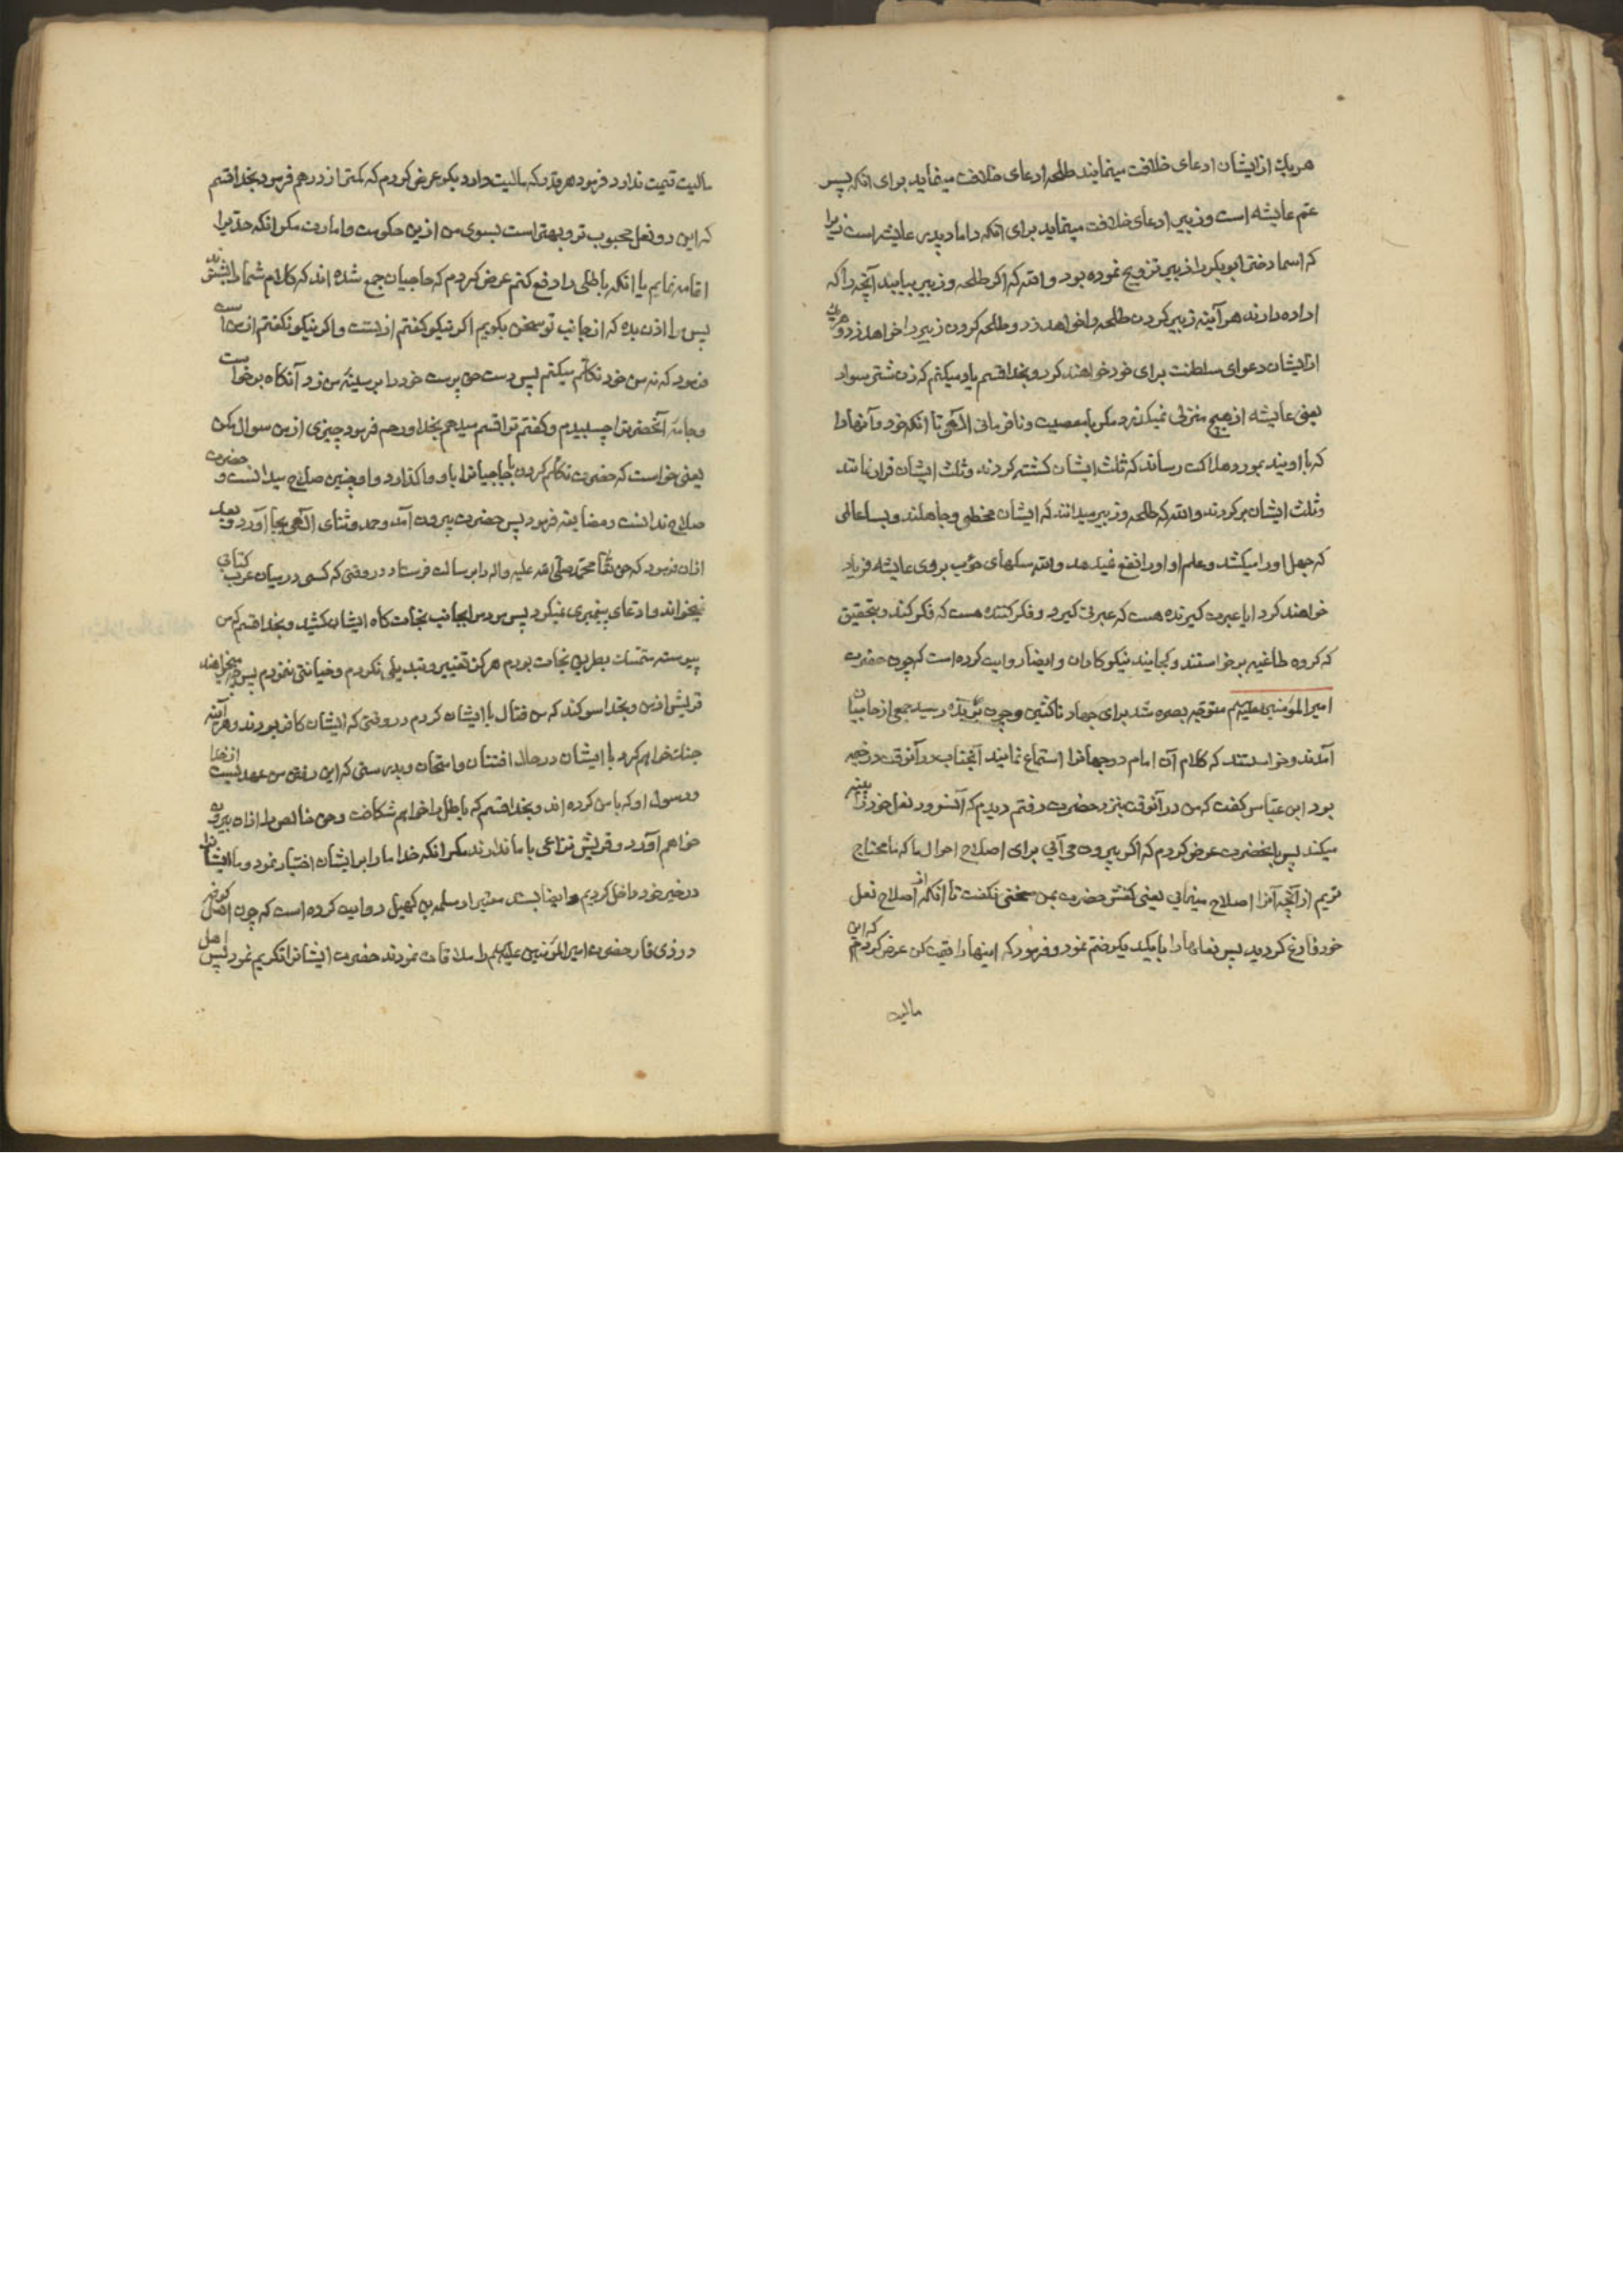 هریک از ایشان ادعای خلافت مینمایند طلحه ادعای خلافت مینماید برای انکه پسر
عم عایشه است و زبیر ادعای خلافت مینماید برای انکه داماد پدر عایشه است زیرا
که اسما دختر ابو بکر را زبیر تزویج نموده بود و الله که اکر طلحه و زبیر بیابند آنچه را که
اراده دارند هر آینه زبیر کردن طلحه را خواهد زد و طلحه کردن زبیر را خواهد زد و هریک
از ایشان دعوای سلطنت برای خود خواهند کرد و بخدا قسم یاد میکنم که زن شتر سوار
یعنی عایشه از هیچ منزلی نمیکذرد مکر با معصیت و نافرمانی الهی تا انکه خود و آنها را
که با اویند بمورد هلاکت رساند که ثلث ایشان کشته کردند و ثلث ایشان فرار نمایند
و ثلث ایشان بر کردند و الله که طلحه و زبیر میدانند که ایشان مخطی و جاهلند و بسا عالمی
که جهل او را میکشد و علم او او را نفع نمیدهد و الله سکهای حوب بروی عایشه فریاد
خواهند کرد ایا عبرت کیرنده هست که عبرتی کیرد و فکر کننده هست که فکر کند و بتحقیق
که کروه طاغیه برخواستند و کجایند نیکو کاران و ایضا روایت کرده است که چون حضرت
امیر المؤمنین علیه السلم متوجه بصره شد برای جهاد ناکثین و چون بربذه رسید جمعی از حاجیان
آمدند و خواستند که کلام آن امام دوجهانرا استماع نمایند آنجناب در آنوقت در خیمه
بود ابن عباس کفت که من در آنوقت بنزد حضرت رفتم دیدم که آنسرور نعل خود را پینه
میکند پس بآنحضرت عرض کردم که اکر بیرون می آئی برای اصلاح احوال ما که ما محتاج
تریم از آنچه آنرا اصلاح مینمائی یعنی کفش حضرت بمن سخنی نکفت تا انکه از اصلاح نعل
خود فارغ کردید پس نعلها را با یکدیکر ضم نمود و فرمود که اینها را قیمت کن عرض کردم که این
مالیت
مالیت قیمت ندارد فرمود هر قدر که مالیت دارد بکو عرض کردم که کمتر از درهم فرمود بخدا قسم
که این دو نعل محبوب تر و بهتر است بسوی من ازین حکومت و امارت مکر انکه حد یرا
اقامه نمایم یا انکه باطلی را دفع کنم عرض کردم که حاجیان جمع شده اند که کلام شما را بشنوند
پس مرا اذن بده که از جانب تو سخن بکویم اکر نیکو کفتم از تست و اکر نیکو نکفتم از من است
فرمود که نه من خود تکلم میکنم پس دست حق پرست خود را بر سینه من زد آنکاه برخواست
و جامه آنحضرترا چسبیدم و کفتم ترا قسم میدهم بخدا و رحم فرمود چیزی از من سوال مکن
یعنی خواست که حضرت تکلم کردن با حاجیانرا باو واکذارد و او چنین صلاح میدانست و حضرت
صلاح ندانست و مضایقه فرمود پس حضرت بیرون آمد و حمد و ثنای الهی بجا آورد و بعد
ازان فرمود که حق تعالی محمد صلی الله علیه و اله را برسالت فرستاد در وقتی که کسی در میان عرب کتابی
نمیخواند و ادعای پیغمبری نمیکرد پس مردمرا بجانب نجات کاه ایشان کشید و بخدا قسم که من
پیوسته متمسک بطریق نجات بودم هرکز تغییر و تبدیلی نکردم و خیانتی ننمودم پس چه میخواهند
قریش از من و بخدا سوکند که من قتال با ایشان کردم در وقتی که ایشان کافر بودند و هر آینه
جنک خواهم کرد با ایشان در حال افتتان و امتحان و بدرستی که این رفتن من عهدیست از خدا
و رسول او که با من کرده اند و بخدا قسم که باطل را خواهم شکافت و حق خالص را ازان بیرون
خواهم آورد و قریش نزاعی با ما ندارند مکر انکه خدا ما را بر ایشان اختیار نمود و ما ایشانرا
در خیر خود داخل کردیم و ایضا بسند معتبر از سلمه بن کهیل روایت کرده است که چون اهل کوفه
در ذی قار حضرت امیر المؤمنین علیه السلم را ملاقات نمودند حضرت ایشانرا تکریم نمود پس اهل